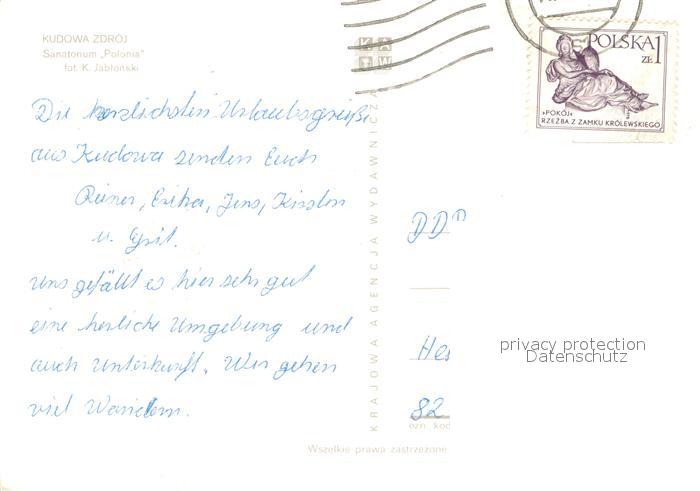 KUDOWA ZDRÓJ
Sanatorium „Polonia"
fot. K. Jabłoński
K A
T W
POLSKA 1
ZŁ
»POKÓJ«
RZEŹBA Z ZAMKU KRÓLEWSKIEGO
Die herzlichsten Urlaubsgrüße
aus Kudowa senden Euch
Reiner, Erika, Jens, Kirsten
u. Grit.
Uns gefällt es hier sehr gut
eine herliche Umgebung und
auch Unterkunft. Wir gehen
viel Wandern.
KRAJOWA AGENCJA WYDAWNICZA
DDR
82
ozn. kod
Wszelkie prawa zastrzeżone
privacy protection
Datenschutz